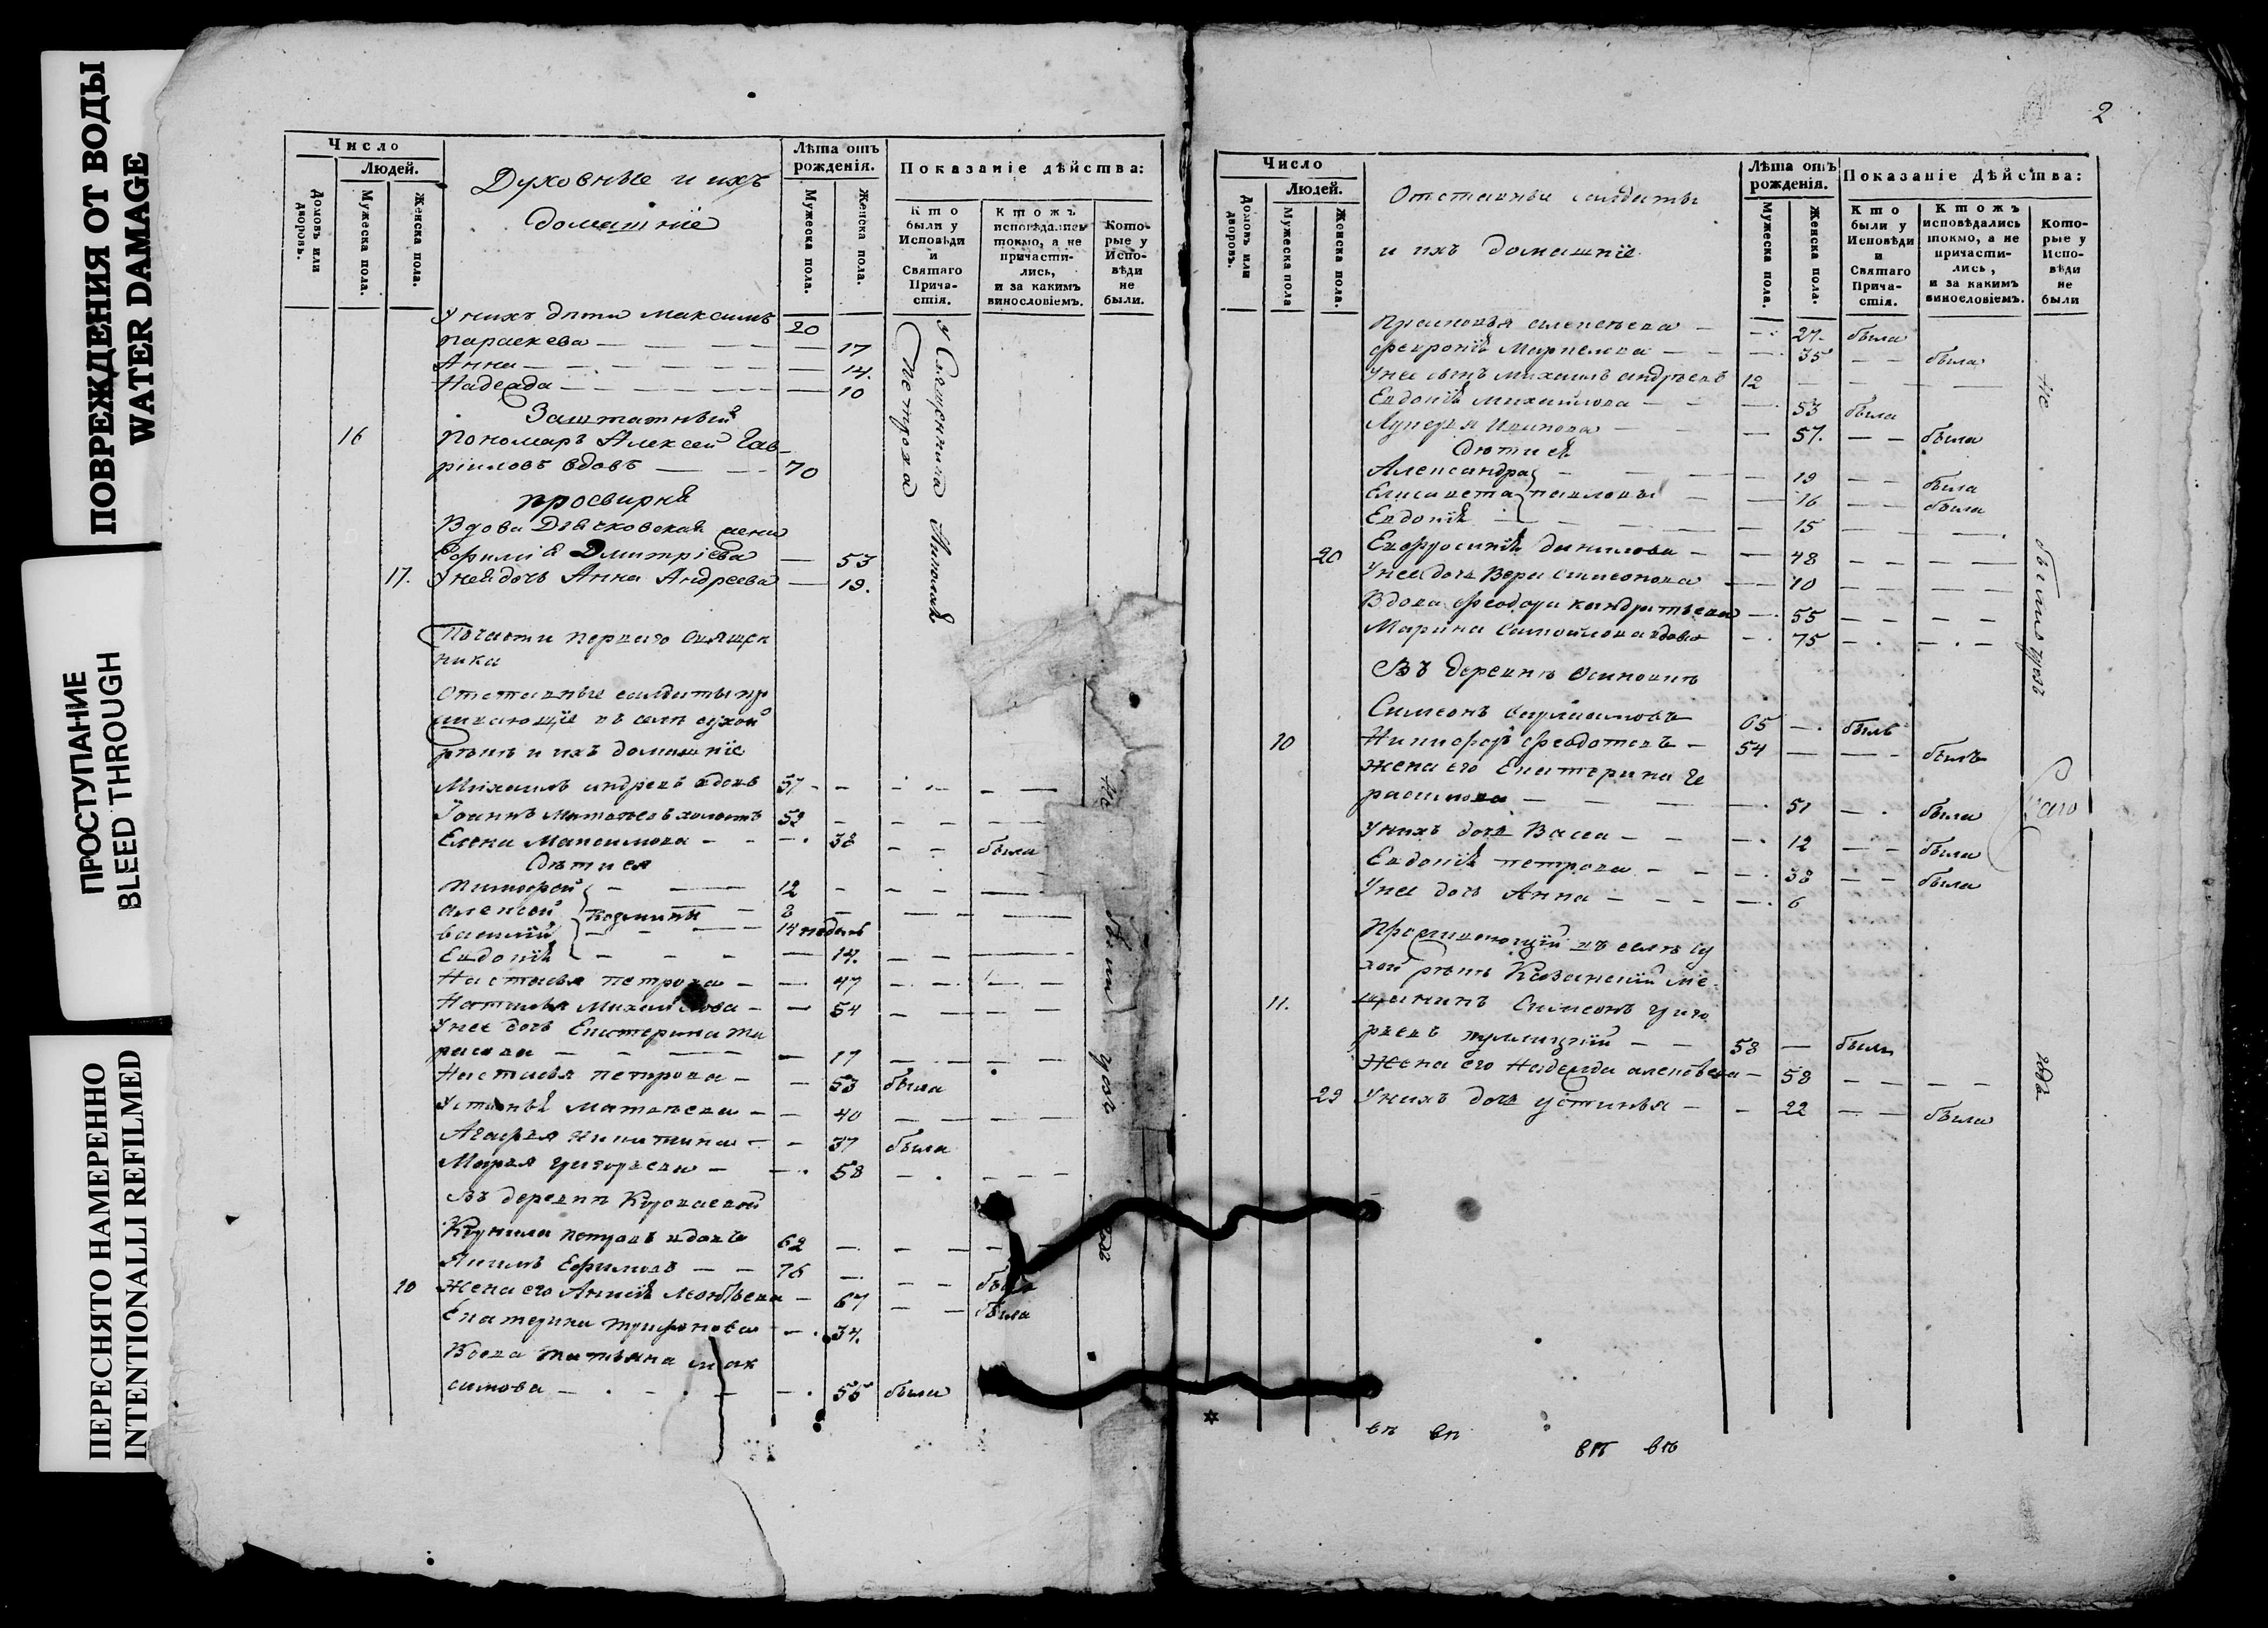 ПОВРЕЖДЕНИЯ ОТ ВОДЫ
WATER DAMAGE
ПРОСТУПАНИЕ
BLEED THROUGH
ПЕРЕСНЯТО НАМЕРЕННО
INTENTIONALLI REFILMED
Число
Людей.
Домовъ или дворовъ.
Мужеска пола.
Женска пола.
Духовные и ихъ
домашніе
Лѣта отъ рожденія.
Мужеска пола.
Женска пола.
Показаніе дѣйства:
Кто были у Исповѣди и Святаго Причастія.
Ктожъ исповѣдались токмо, а не причастились, и за какимъ винословіемъ.
Которые у Исповѣди не были.
У нихъ дѣти Максимъ 20
Параскева — — — — 17
Анна — — — — — 14.
Надежда — — — — 10
у Священника Николая Петрова
Заштатный
16 Пономарь Алексей Гав-
ріиловъ вдовъ — — 70
просвирня
Вдова Дьячковская жена
Ефимія Дмитріева — 53
17. У ней дочь Анна Андреева — 19.
По части перваго священ
ника
Отставные солдаты пр
живающіе въ селѣ сухой
рѣкѣ и ихъ домашніе
Михаилъ андреевъ вдовъ 57 - - - - - —
Іоаннъ Матвѣевъ холостъ 52 - - - - —
Елена Максимова - - - 38 - - была
Дѣти ея
Никифоръ - — 12 - - - —
алексей козмины - 8 - — - —
василій - - — 14 недель
Евдокія - - - — 14. - - —
Настасья петрова - — 47
Наталья Михайлова - — 54
У нее дочь Екатерина та
расова - - — — 17
Настасья петрова - - 53 была
Устинья Матвѣева - - 40
Агафья никитина - - 37 была
Марья григорьева - - 58
Въ деревнѣ
петровъ вдовъ 62
Ефимовъ - - 76
10 Жена его Анисія Леонтьева - 67 - - была
Екатерина трифонова - - 34.
Вдова татьяна мак
симова - - - - - 55 была
2
Число
Людей.
Домовъ или дворовъ.
Мужеска пола
Женска пола.
Отставные солдаты
и ихъ домашніе.
Лѣта отъ рожденія.
Мужеска пола.
Женска пола.
Показаніе Дѣйства:
Кто были у Исповѣди и Святаго Причастія.
Ктожъ исповѣдались токмо, а не причастились, и за какимъ винословіемъ.
Которые у Исповѣди не были
Прасковья алексеева - - 27. была
Февронія - - 35 - - была
У нее сынъ михаилъ андреевъ 12 — —
Евдокія михайлова - - 53 была
57. - - была
Дѣти ея
Александра - — — 19 - - была
Елисавета павловы - — 16 - - была
Евдокія - - — 15 —
20 Евфросинія данилова - — 48 - - - —
У нее дочь Вера симеонова - 10
Вдова феодора кондратьева - 55
Марина Самойлова вдова - 75
Въ деревнѣ Осиновкѣ
Симеонъ 65 - былъ
10 Никифоръ феодотовъ - 54 — - былъ
жена его Екатерина Ге
расимова — — — - 51 - - была
У нихъ дочь Васса - - - 12 - - была
Евдокія петрова - - - 38 - - была
У нее дочь Анна - - - - 6
Проживающій въ селѣ су
хой рѣкѣ Казанскій мѣ-
11. щанинъ Симеонъ григо
рьевъ - - 58 — былъ
Жена его Надежда алексѣева - 58 - - - -
29 У нихъ дочь устинья - - 22 - - была